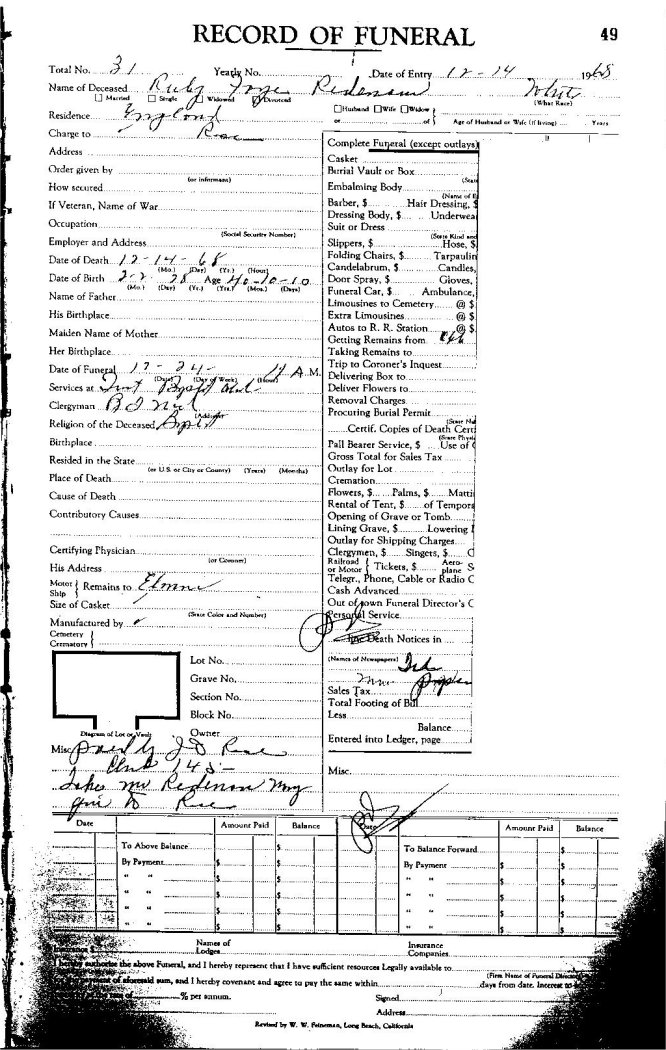 RECORD OF FUNERAL
49
Total No. 31 Yearly No. Date of Entry 12-14 1968
Name of Deceased Ruby Faye White
Married Single Widowed Divorced
(What Race)
Husband Wife Widow
or of Age of Husband or Wife (if living) Years
Residence England
Charge to
Address
Order given by
(or informant)
How secured
If Veteran, Name of War
Occupation
(Social Security Number)
Employer and Address
Date of Death 12-14-68
(Mo.) (Day) (Yr.) (Hour)
Date of Birth 2-2-28 Age 40-10-10
(Mo.) (Day) (Yr.) (Yrs.) (Mos.) (Days)
Name of Father
His Birthplace
Maiden Name of Mother
Her Birthplace
Date of Funeral A.M.
(Date) (Day of Week) (Hour)
Services at Baptist
Clergyman
(Address)
Religion of the Deceased Bapt
Birthplace
Resided in the State
(or U.S. or City or County) (Years) (Months)
Place of Death
Cause of Death
Contributory Causes
Certifying Physician
(or Coroner)
His Address
Motor Ship Remains to
Size of Casket
(State Color and Number)
Manufactured by
Cemetery
Crematory
Lot No.
Grave No.
Section No.
Block No.
Diagram of Lot or Vault Owner
Misc. Paid by J D
145-
Complete Funeral (except outlays)
Casket
Burial Vault or Box
(State
Embalming Body
(Name of E
Barber, $ Hair Dressing, $
Dressing Body, $ Underwear
Suit or Dress
(State Kind and
Slippers, $ Hose, $
Folding Chairs, $ Tarpaulin
Candelabrum, $ Candles,
Door Spray, $ Gloves,
Funeral Car, $ Ambulance,
Limousines to Cemetery @ $
Extra Limousines @ $
Autos to R. R. Station @ $
Getting Remains from
Taking Remains to
Trip to Coroner's Inquest
Delivering Box to
Deliver Flowers to
Removal Charges
Procuring Burial Permit
(State Nu
Certif. Copies of Death Certi
(State Physi
Pall Bearer Service, $ Use of
Gross Total for Sales Tax
Outlay for Lot
Cremation
Flowers, $ Palms, $ Matti
Rental of Tent, $ of Tempora
Opening of Grave or Tomb
Lining Grave, $ Lowering
Outlay for Shipping Charges
Clergymen, $ Singers, $
Railroad or Motor Tickets, $ Aeroplane
Telegr., Phone, Cable or Radio C
Cash Advanced
Out of town Funeral Director's C
Personal Service
Death Notices in
(Names of Newspapers)
Sales Tax
Total Footing of Bill
Less
Balance
Entered into Ledger, page
Misc.
Date Amount Paid Balance Date Amount Paid Balance
To Above Balance $ To Balance Forward $
By Payment $ $ By Payment $ $
" " $ $ " " $ $
" " $ $ " " $ $
" " $ $ " " $ $
" " $ $ " " $ $
Names of Lodges
Insurance Companies
I hereby authorize the above Funeral, and I hereby represent that I have sufficient resources Legally available to
(Firm Name of Funeral Director)
payment of aforesaid sum, and I hereby covenant and agree to pay the same within days from date. Interest to
% per annum. Signed
Address
Revised by W. W. Feineman, Long Beach, California